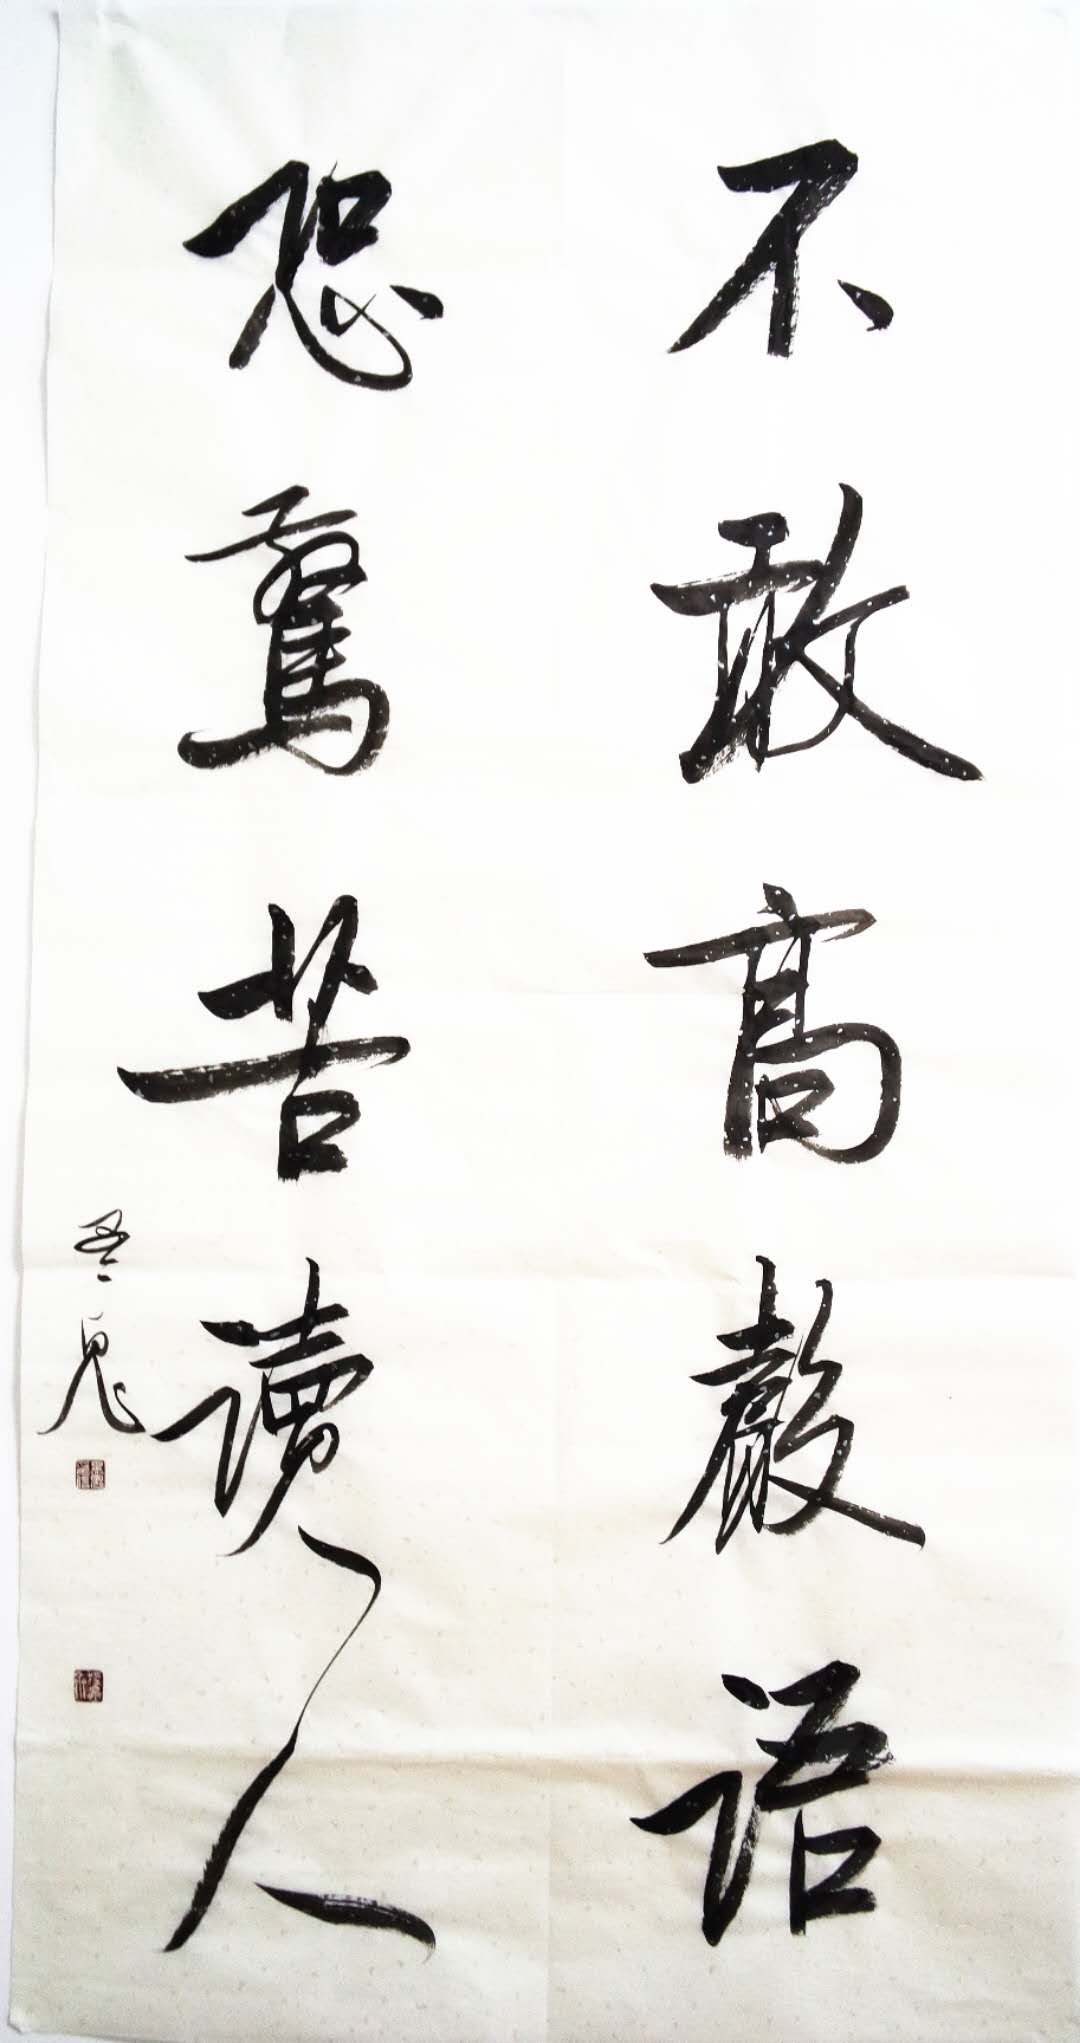 不敢高聲語
恐驚苦讀人